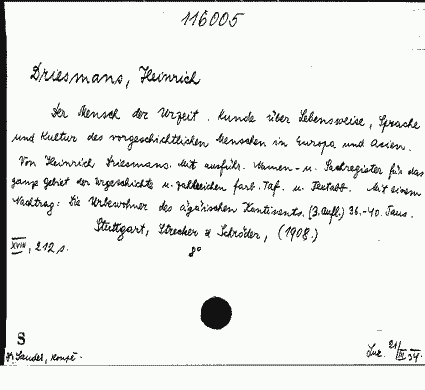 116005
Driesmans, Heinrich
Der Mensch der Urzeit. Kunde über Lebensweise, Sprache
und Kultur des vorgeschichtlichen Menschen in Europa und Asien.
Von Heinrich Driesmans. Mit ausführ. Namen- u. Sachregister für das
ganze Gebiet der Urgeschichte u. zahlreichen farb. Taf. u. Textabb. Mit einem
Nachtrag: Die Urbewohner des ägäischen Kontinents. (3. Aufl.) 36.-40. Taus.
Stuttgart, Strecker & Schröder, (1908.)
XVIII, 212 s. 8°
S
21/III 34.